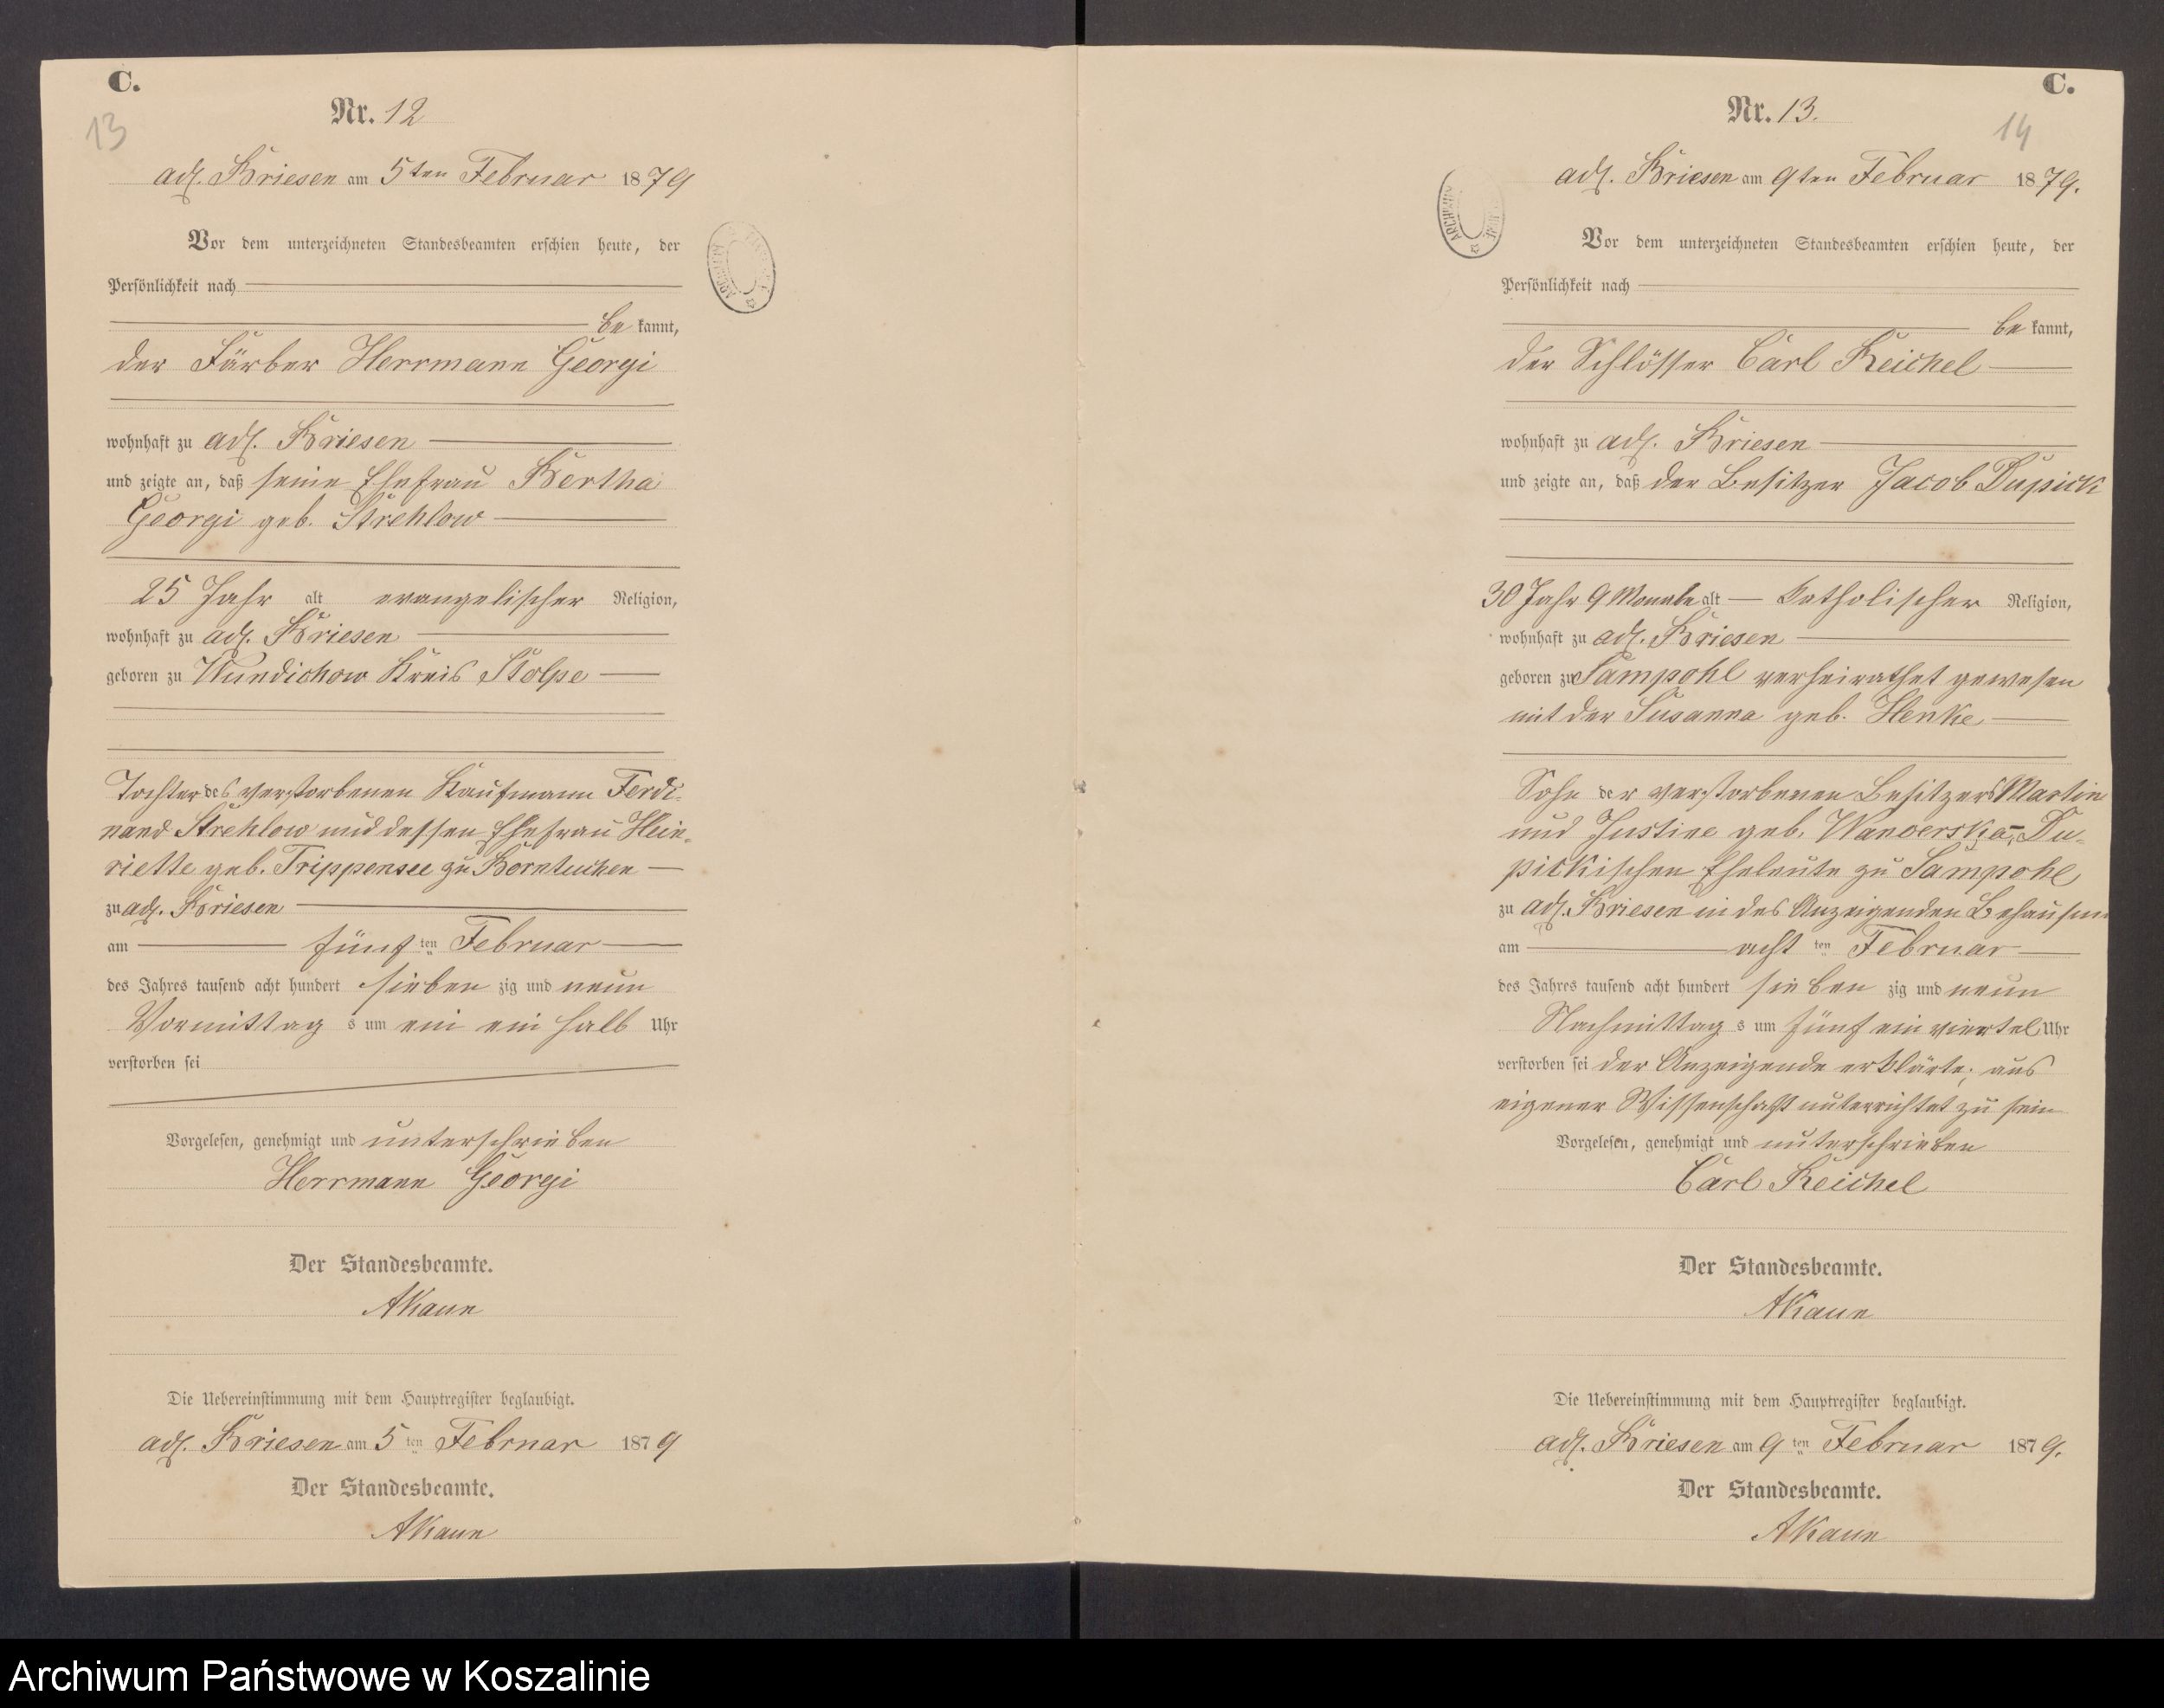 C.
13
Nr. 12
adl. Briesen am 5ten Februar 1879
Vor dem unterzeichneten Standesbeamten erschien heute, der
Persönlichkeit nach
be kannt,
der Färber Herrmann Georgi
wohnhaft zu adl. Briesen
und zeigte an, daß seine Ehefrau Bertha
Georgi geb. Strehlow
25 Jahr alt evangelischer Religion,
wohnhaft zu adl. Briesen
geboren zu Wundichow Kreis Stolpe
Tochter des verstorbenen Kaufmann Ferdi-
nand Strehlow und dessen Ehefrau Hein-
riette geb. Trippensee zu Borntuchen
zu adl. Briesen
am fünf ten Februar
des Jahres tausend acht hundert sieben zig und neun
Vormittag s um ein ein halb Uhr
verstorben sei
Vorgelesen, genehmigt und unterschrieben
Herrmann Georgi
Der Standesbeamte.
AKaun
Die Uebereinstimmung mit dem Hauptregister beglaubigt.
adl. Briesen am 5 ten Februar 1879
Der Standesbeamte.
AKaun
C.
14
Nr. 13.
adl. Briesen am 9ten Februar 1879.
Vor dem unterzeichneten Standesbeamten erschien heute, der
Persönlichkeit nach
be kannt,
der Schlösser Carl Reichel
wohnhaft zu adl. Briesen
und zeigte an, daß der Besitzer Jacob Dupick
30 Jahr 9 Monate alt katholischer Religion,
wohnhaft zu adl. Briesen
geboren zu Sampohl verheirathet gewesen
mit der Susanna geb. Henke
Sohn der verstorbenen Besitzers Martin
und Justine geb. Du-
pickischen Eheleute zu Sampohl
zu adl. Briesen in des Anzeigenden Behausun
am acht ten Februar
des Jahres tausend acht hundert sieben zig und neun
Nachmittag s um fünf ein viertel Uhr
verstorben sei der Anzeigende erklärte, aus
eigener Wissenschaft unterrichtet zu sein
Vorgelesen, genehmigt und unterschrieben
Carl Reichel
Der Standesbeamte.
AKaun
Die Uebereinstimmung mit dem Hauptregister beglaubigt.
adl. Briesen am 9 ten Februar 1879.
Der Standesbeamte.
AKaun
Archiwum Państwowe w Koszalinie